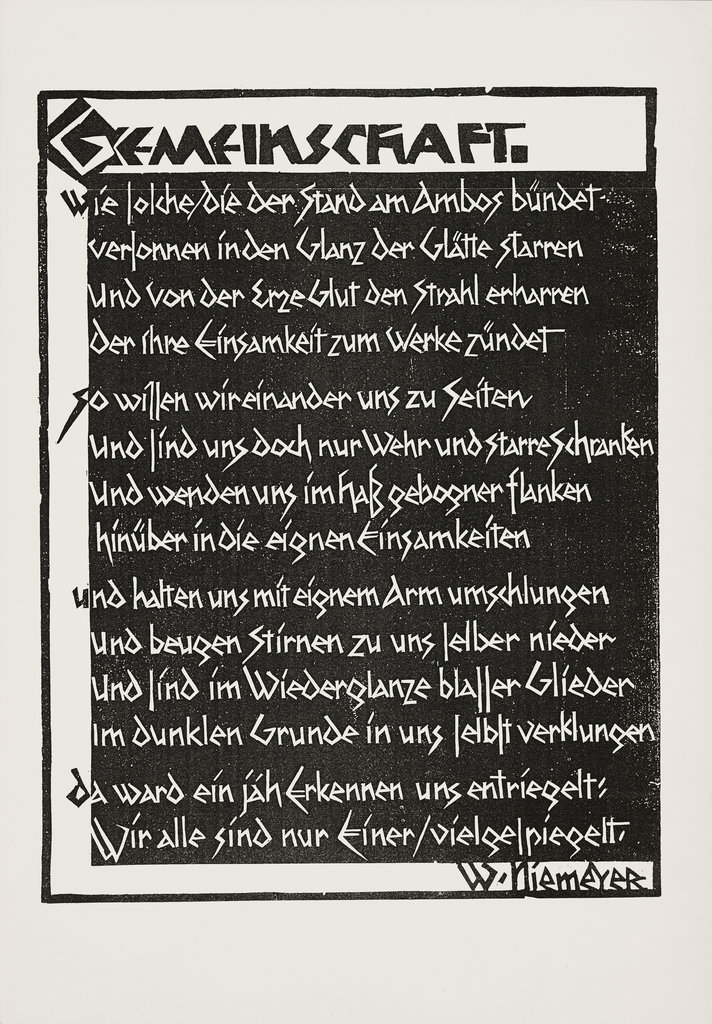 GEMEINSCHAFT.
Wie solche/die der Stand am Ambos bündet
versonnen in den Glanz der Glätte starren
Und von der Erze Glut den Strahl erharren
Der ihre Einsamkeit zum Werke zündet
So willen wir einander uns zu Seiten
Und sind uns doch nur Wehr und starre Schranken
Und wenden uns im Haß gebogner flanken
hinüber in die eignen Einsamkeiten
und halten uns mit eignem Arm umschlungen
Und beugen Stirnen zu uns selber nieder
Und sind im Wiederglanze blasser Glieder
Im dunklen Grunde in uns selbst verklungen
da ward ein jäh Erkennen uns entriegelt:
Wir alle sind nur Einer/vielgespiegelt.
W. Niemeyer